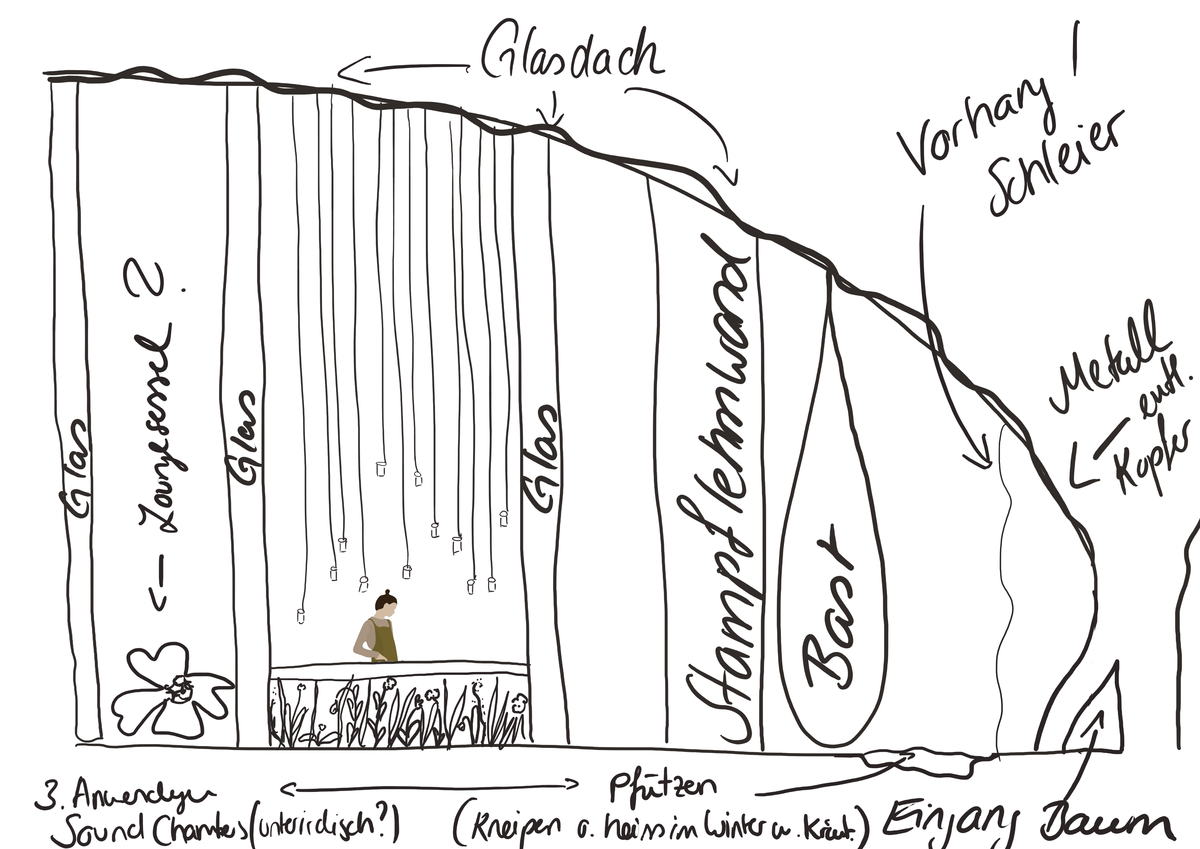 Glasdach
Vorhang
Schleier
Metall
entl.
Kupfer
Glas
<- Loungesessel ?
Glas
Glas
Stampflehmwand
Bast
3. Anwendungen
Sound Chambers (unterirdisch?)
Pfützen
(Kneipen o. heiss im Winter w. Kräut.)
Eingang
Baum